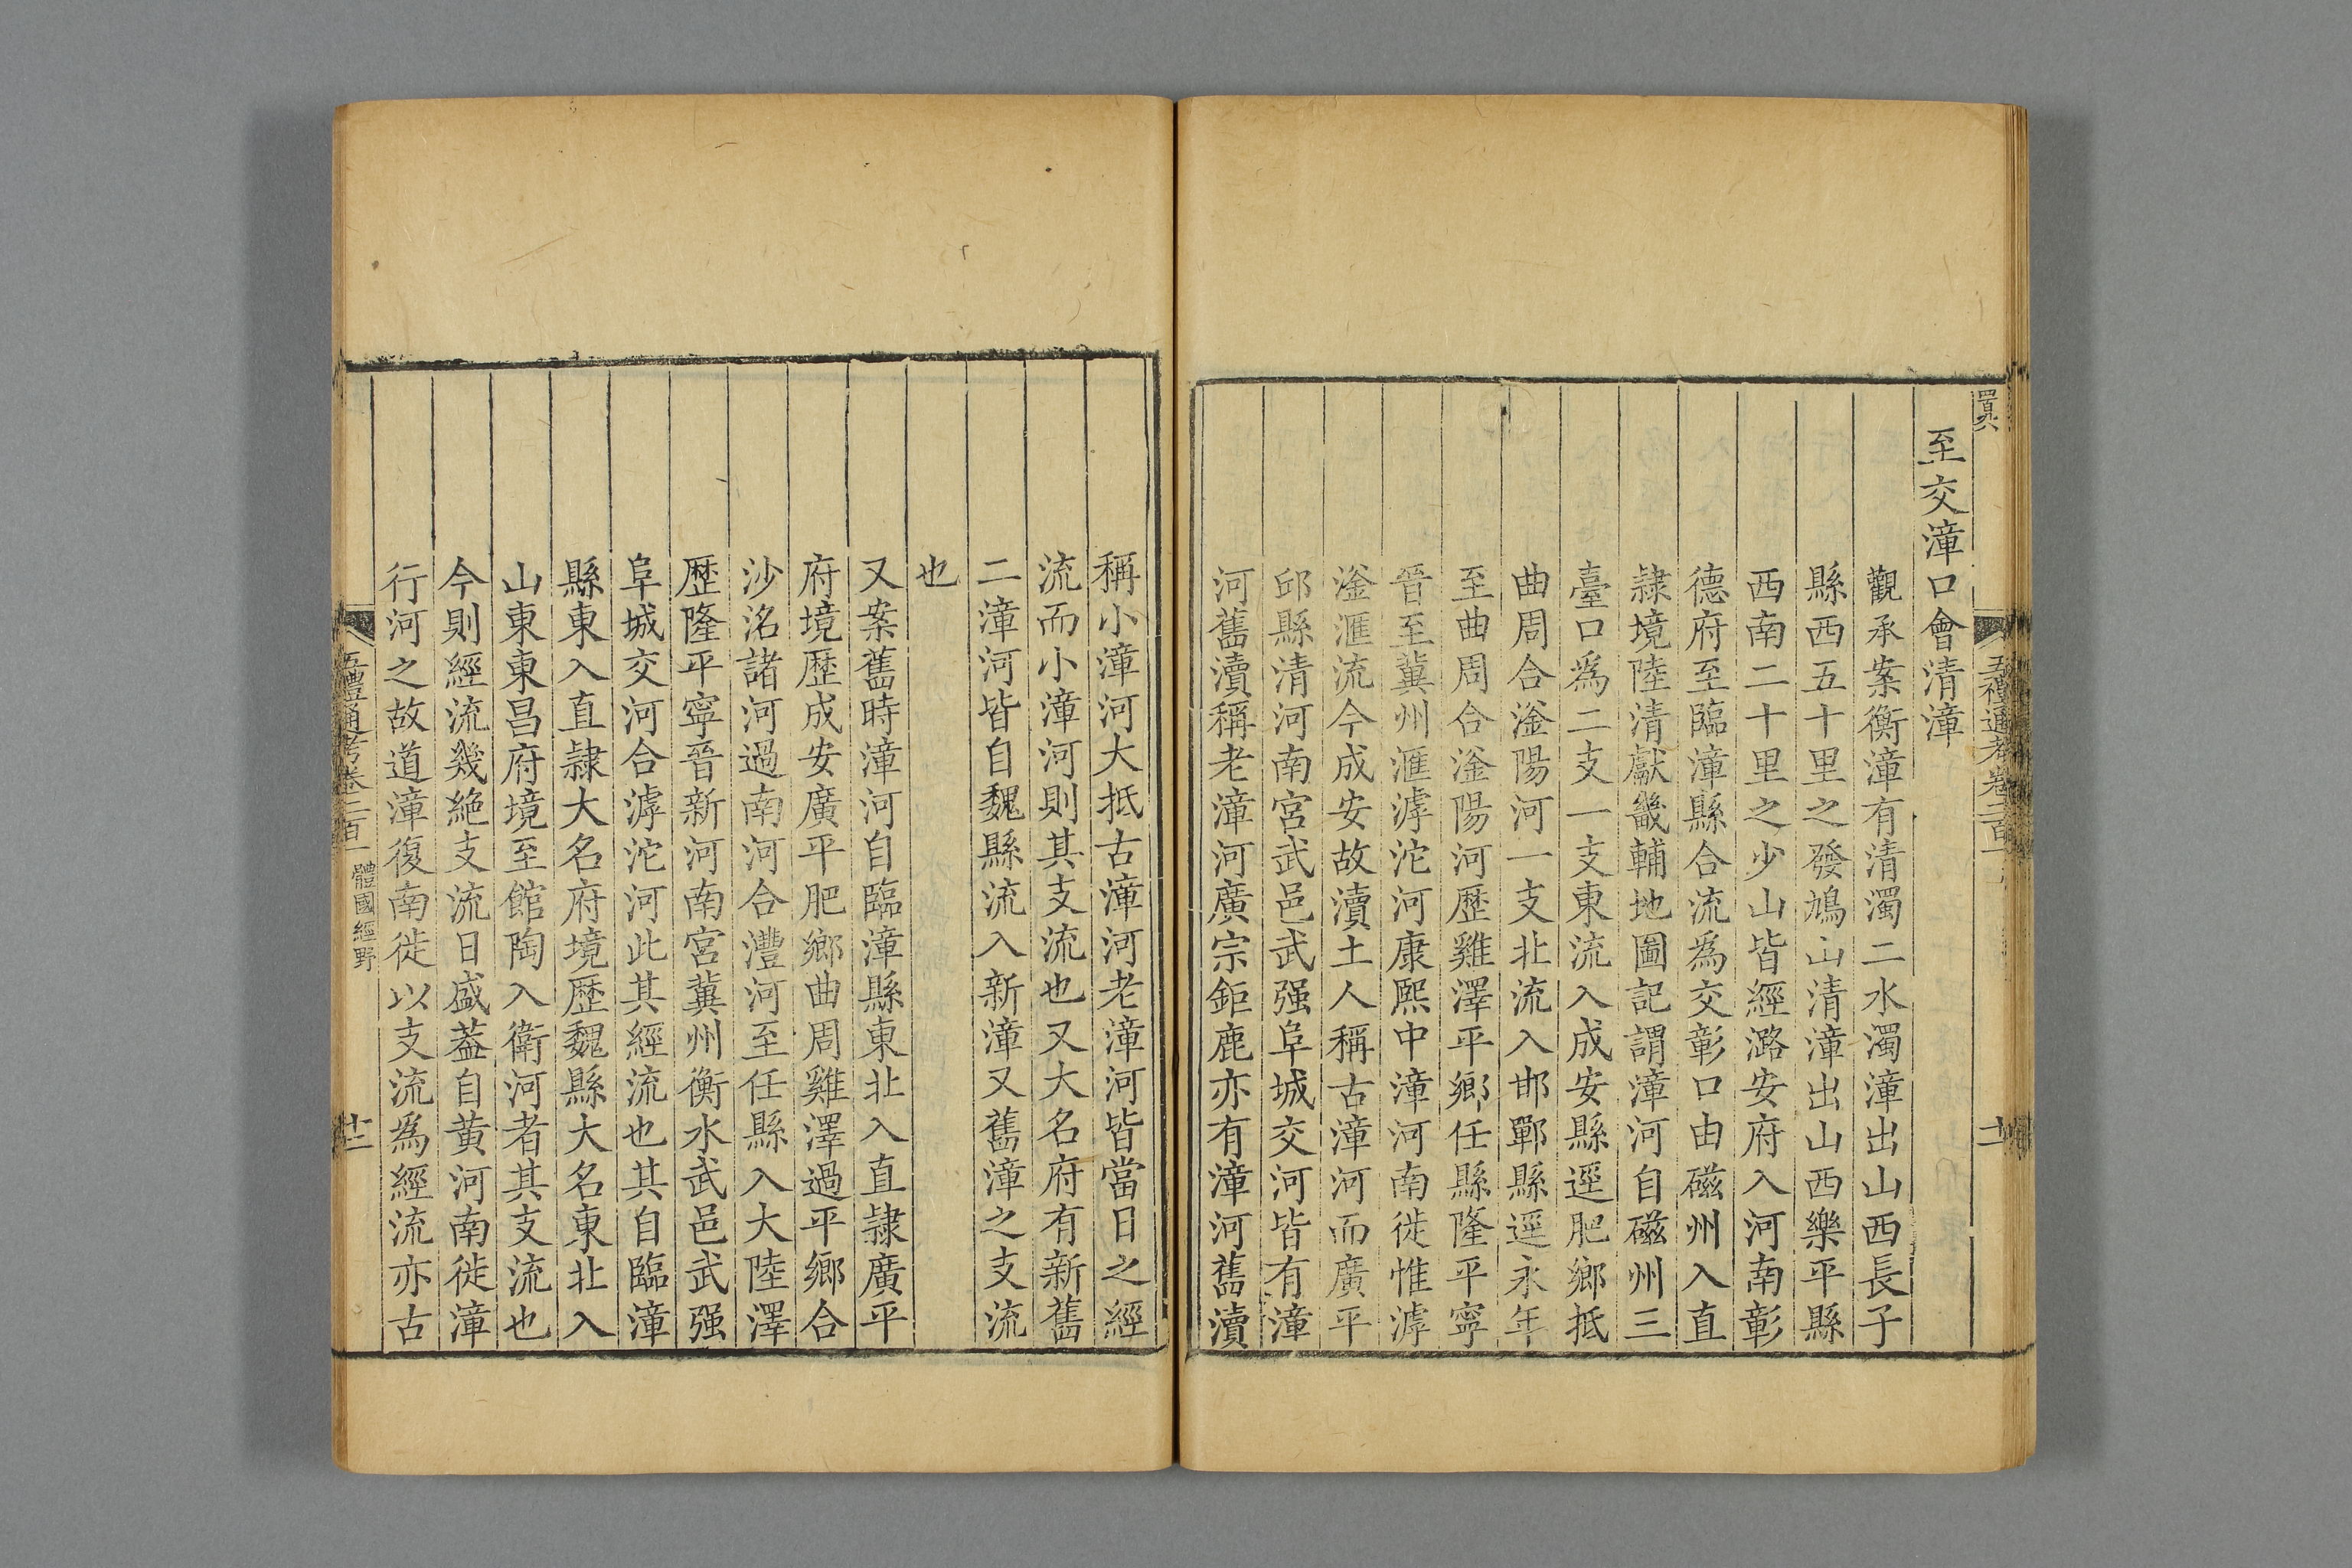 五禮通考卷二百一
十一
至交漳口會清漳
觀承案衡漳有清濁二水濁漳出山西長子
縣西五十里之發鳩山清漳出山西樂平縣
西南二十里之少山皆經潞安府入河南彰
德府至臨漳縣合流爲交彰口由磁州入直
隷境陸清獻畿輔地圖記謂漳河自磁州三
臺口爲二支一支東流入成安縣逕肥鄉抵
曲周合滏陽河一支北流入邯鄲縣逕永年
至曲周合滏陽河歷雞澤平鄉任縣隆平寧
晉至冀州滙滹沱河康熙中漳河南徙惟滹
滏滙流今成安故瀆土人稱古漳河而廣平
邱縣清河南宮武邑武强阜城交河皆有漳
河舊瀆稱老漳河廣宗鉅鹿亦有漳河舊瀆
稱小漳河大抵古漳河老漳河皆當日之經
流而小漳河則其支流也又大名府有新舊
二漳河皆自魏縣流入新漳又舊漳之支流
也
又案舊時漳河自臨漳縣東北入直隷廣平
府境歷成安廣平肥鄉曲周雞澤過平鄉合
沙洺諸河過南河合灃河至任縣入大陸澤
歷隆平寧晉新河南宮冀州衡水武邑武强
阜城交河合滹沱河此其經流也其自臨漳
縣東入直隷大名府境歷魏縣大名東北入
山東東昌府境至館陶入衛河者其支流也
今則經流幾絶支流日盛葢自黄河南徙漳
行河之故道漳復南徙以支流爲經流亦古
五禮通考卷二百一 體國經野
十二